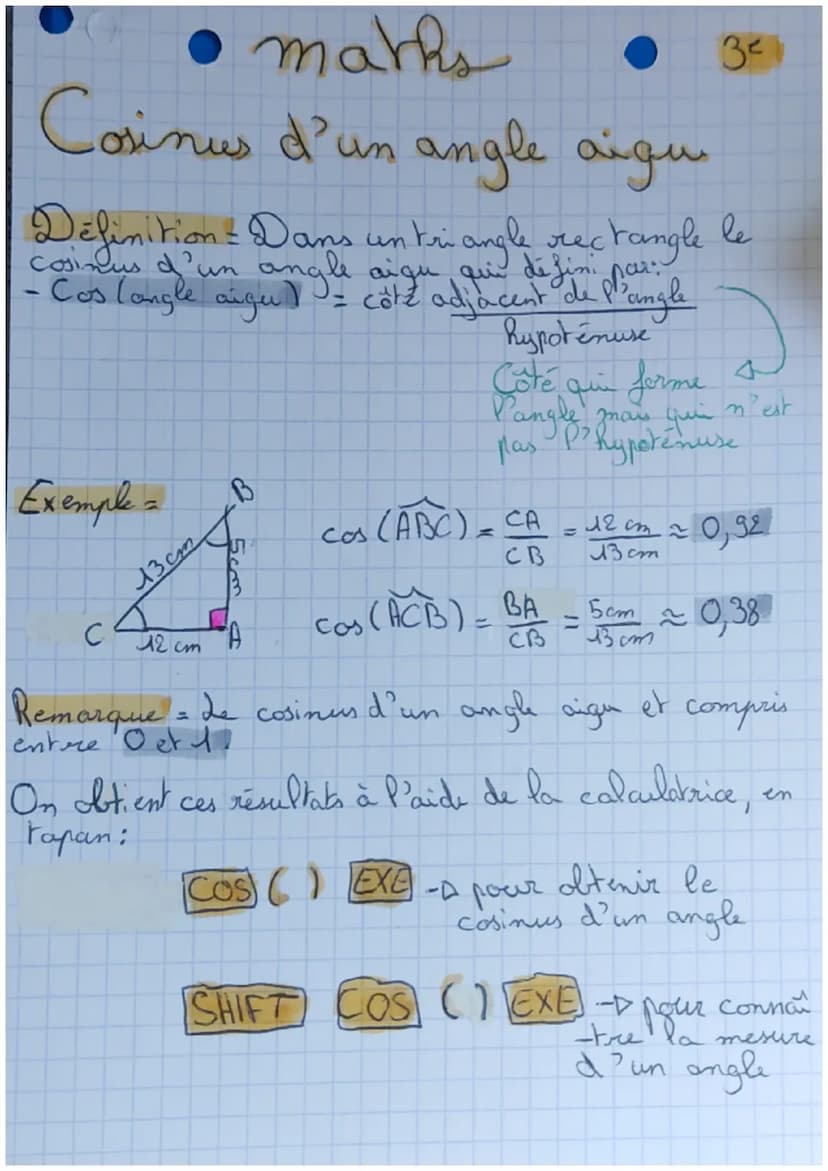 maths 3e
Cosinus d'un angle aigu
Définition = Dans un triangle rectangle le
cosinus d'un angle aigu qui défini par:
- Cos (angle aigu) = côté adjacent de l'angle
hypoténuse
Côté qui forme
l'angle mais qui n'est
pas l'hypoténuse
Exemple =
B
13cm
5cm
C
12 cm
A
cos (ABC) = CA/CB = 12 cm/13 cm ≈ 0,92
cos (ACB) = BA/CB = 5cm/13 cm ≈ 0,38
Remarque = Le cosinus d'un angle aigu et compris
entre 0 et 1.
On obtient ces résultats à l'aide de la calculatrice, en
tapan:
COS ( ) EXE → pour obtenir le
cosinus d'un angle
SHIFT COS ( ) EXE → pour connaî
-tre la mesure
d'un angle